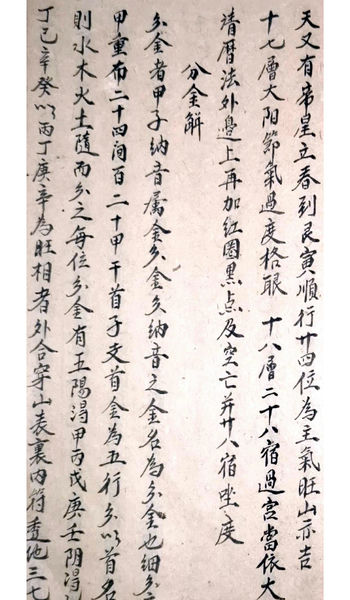 天又有帝星立春到艮寅順行廿四位為主氣旺山亦吉
十七層大阳節氣過度格眼 十八層二十八宿過宮當依大
清曆法外邊上再加紅圈黑点及空亡并廿八宿坐度
分金解
分金者甲子納音属金分金分納音之金名為分金也細分
甲重布二十四间百二十甲干首子支首金為五行分以首名
則水木火土隨而分之每位分金有五陽淂甲丙戊庚壬阴淂
丁己辛癸以丙丁庚辛為旺相者外合穿山表裏内符透地三七